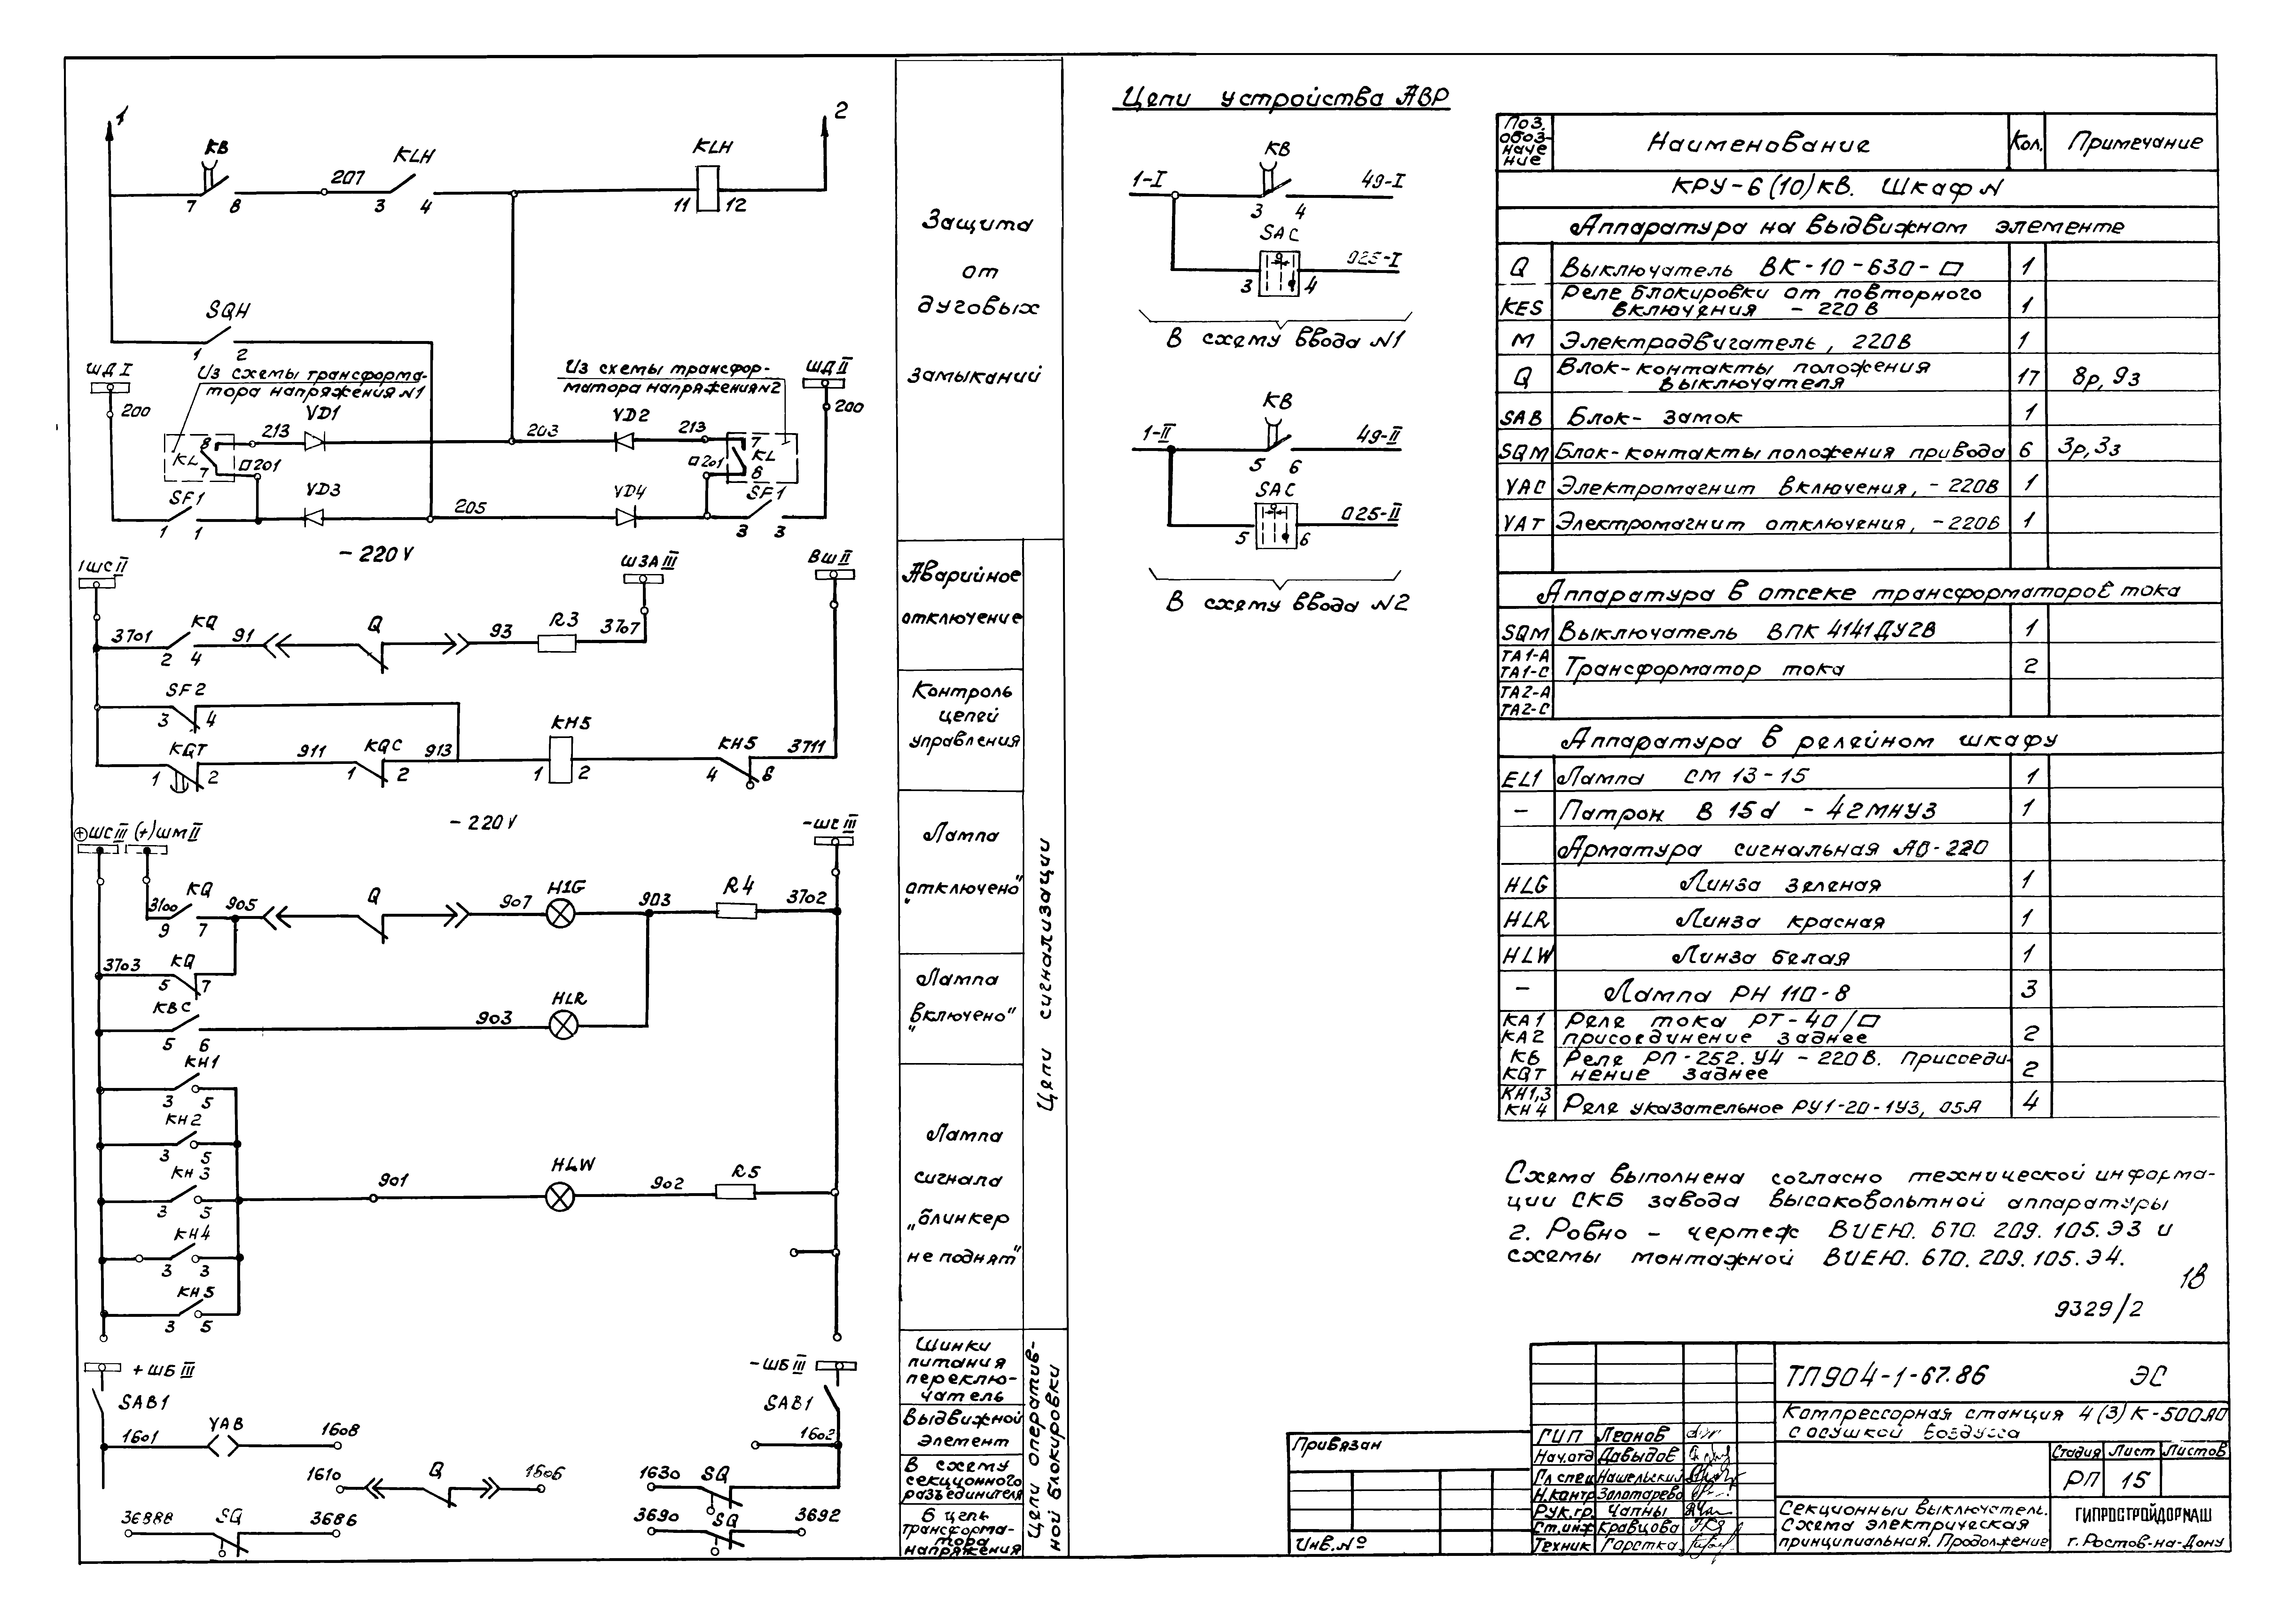 1
2
КВ
207
KLH
KLH
7 8
3 4
11 12
SQH
1 2
ШД I
200
Из схемы трансформа-
тора напряжения №1
Из схемы трансфор-
матора напряжения №2
ШД II
200
VD1
VD2
213
203
213
8
KL
7
□201
□201
7
KL
8
SF1
VD3
205
VD4
SF1
1 1
3 3
- 220 V
1ШС II
ШЗА III
ВШ II
3701
KQ
91
Q
93
R3
3707
2 4
SF2
3 4
KQT
911
KQC
913
KH5
KH5
3711
1 2
1 2
1 2
4 6
- 220 V
⊕ШС III (+)ШМ II
-ШС III
3100
KQ
905
Q
907
H1G
903
R4
3702
9 7
3703
KQ
5 7
КВС
903
HLR
5 6
KH1
3 5
KH2
3 5
KH3
3 5
901
HLW
902
R5
KH4
3 3
KH5
3 5
+ШБ III
-ШБ III
SAB1
SAB1
1601
YAB
1608
1602
1610
Q
1606
1630
SQ
36888
SQ
3686
3690
SQ
3692
Защита
от
дуговых
замыканий
Аварийное
отключение
Контроль
цепей
управления
Лампа
"отключено"
Лампа
"включено"
Лампа
сигнала
"блинкер
не поднят"
Цепи сигнализации
Шинки
питания
переклю-
чатель
Выдвижной
элемент
В схему
секционного
разъединителя
В цепь
трансформа-
тора
напряжения
Цепи оператив-
ной блокировки
Цепи устройства АВР
КВ
1-I
49-I
3 4
SAC
025-I
3 4
В схему ввода №1
КВ
1-II
49-II
5 6
SAC
025-II
5 6
В схему ввода №2
Поз. обоз-наче ние Наименование Кол. Примечание
КРУ-6(10)кв. Шкаф N
Аппаратура на выдвижном элементе
Q Выключатель ВК-10-630-□ 1
KES Реле блокировки от повторного
включения - 220 В 1
М Электродвигатель, 220В 1
Q Блок-контакты положения
выключателя 17 8р, 9з
SAB Блок-замок 1
SQM Блок-контакты положения привода 6 3р, 3з
YAC Электромагнит включения, - 220В 1
YAT Электромагнит отключения, -220В 1
Аппаратура в отсеке трансформаторов тока
SQM Выключатель ВПК 4141ДУ2В 1
TA1-A
TA1-C Трансформатор тока 2
TA2-A
TA2-C
Аппаратура в релейном шкафу
EL1 Лампа СМ 13-15 1
- Патрон В 15d - 42МНУ3 1
Арматура сигнальная АВ-220
HLG Линза зеленая 1
HLR Линза красная 1
HLW Линза белая 1
- Лампа РН 110-8 3
KA1 Реле тока РТ-40/□
KA2 присоединение заднее 2
КБ Реле РП-252.У4 - 220В. Присоеди-
KQT нение заднее 2
KH1,3
KH4 Реле указательное РУ1-20-1У3, 05А 4
Схема выполнена согласно технической информа-
ции СКБ завода высоковольтной аппаратуры
г. Ровно - чертеж ВИЕЮ. 670. 209. 105. Э3 и
схемы монтажной ВИЕЮ. 670. 209. 105. Э4.
18
9329/2
Привязан
Инв. №
ГИП Леонов
Нач.отд Давыдов
Гл спец Нашельский
Н.контр Золотарева
Рук.гр. Чапны
Ст.инж Кравцова
Техник Горстка
ТП904-1-67.86 ЭС
Компрессорная станция 4(3)К-500АО
с осушкой воздуха
Стадия Лист Листов
РП 15
Секционный выключатель.
Схема электрическая
принципиальная. Продолжение
ГИПРОСТРОЙДОРМАШ
г. Ростов-на-Дону